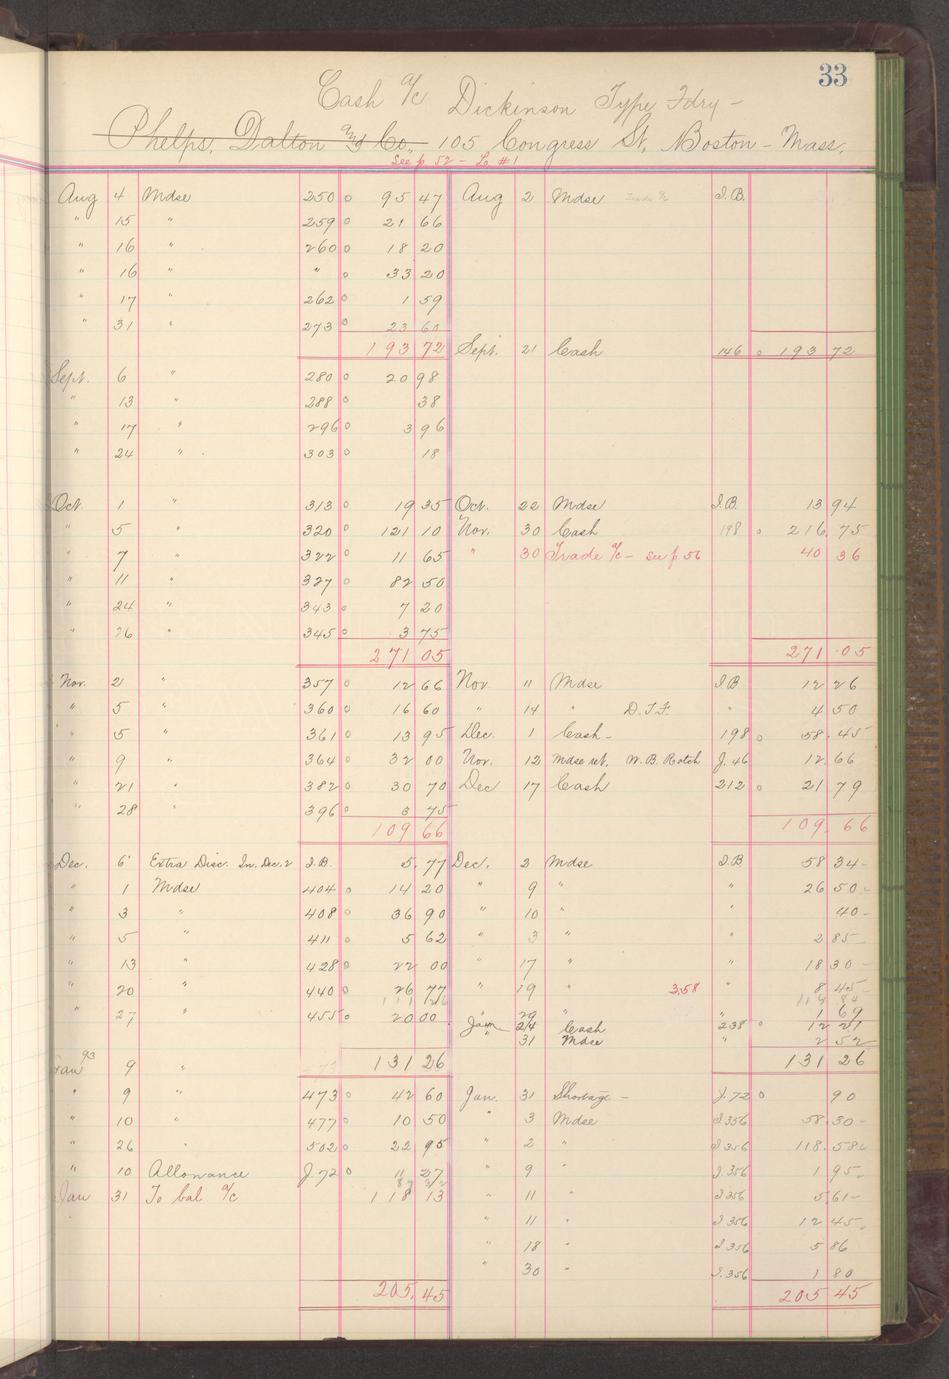 33
Cash a/c Dickinson Type Fdry -
Phelps, Dalton and Co., 105 Congress St, Boston - Mass.
See p 52 - Lo #1
Aug 4 Mdse 250 0 95 47 Aug 2 Mdse Trade a/c I.B.
" 15 " 259 0 21 66
" 16 " 260 0 18 20
" 16 " " 0 33 20
" 17 " 262 0 1 59
" 31 " 273 0 23 60
193 72 Sept. 21 Cash 146 0 193 72
Sept. 6 " 280 0 20 98
" 13 " 288 0 38
" 17 " 296 0 3 96
" 24 " 303 0 18
Oct. 1 " 313 0 19 35 Oct. 22 Mdse I.B. 13 94
" 5 " 320 0 121 10 Nov. 30 Cash 198 0 216.75
" 7 " 322 0 11 65 " 30 Trade a/c - see p. 56 40 36
" 11 " 327 0 82 50
" 24 " 343 0 7 20
" 26 " 345 0 3 75
271 05 271 05
Nov. 2 " 357 0 12 66 Nov 11 Mdse I.B 12 26
" 5 " 360 0 16 60 " 14 " D.T.F. " 4 50
" 5 " 361 0 13 95 Dec. 1 Cash - 198 0 58.45
" 9 " 364 0 32 00 Nov. 12 Mdse ret. W.B. Rotch J. 46 12.66
" 21 " 382 0 30 70 Dec 17 Cash 212 0 21 79
" 28 " 396 0 3 75
109 66 109.66
Dec. 6 Extra Disc. In. Dec. 2 I.B. 5.77 Dec. 2 Mdse I.B 58 34-
" 1 Mdse 404 0 14 20 " 9 " " 26 50-
" 3 " 408 0 36 90 " 10 " " 40-
" 5 " 411 0 5 62 " 3 " " 2 85-
" 13 " 428 0 22 00 " 17 " " 18 30-
" 20 " 440 0 26 77 " 19 " 3.58 " 8 45-
" 27 " 455 0 20 00 " 29 " " 1 69
Jan 24 Cash 238 0 12 21
" 31 Mdse " 2 52
131 26 131 26
Jan 93 9 "
" 9 " 473 0 42 60 Jan. 31 Shortage - J. 72 0 90
" 10 " 477 0 10 50 " 3 Mdse I 356 58.30-
" 26 " 502 0 22 95 " 2 " I 356 118.58
" 10 Allowance J. 72 0 11 27 " 9 " I.356 1 95-
Jan 31 To bal a/c 118 13 " 11 " I 356 5.61-
" 11 " I 356 12 45-
" 18 " I 356 5 86
" 30 " I.356 1 80
205.45 205 45